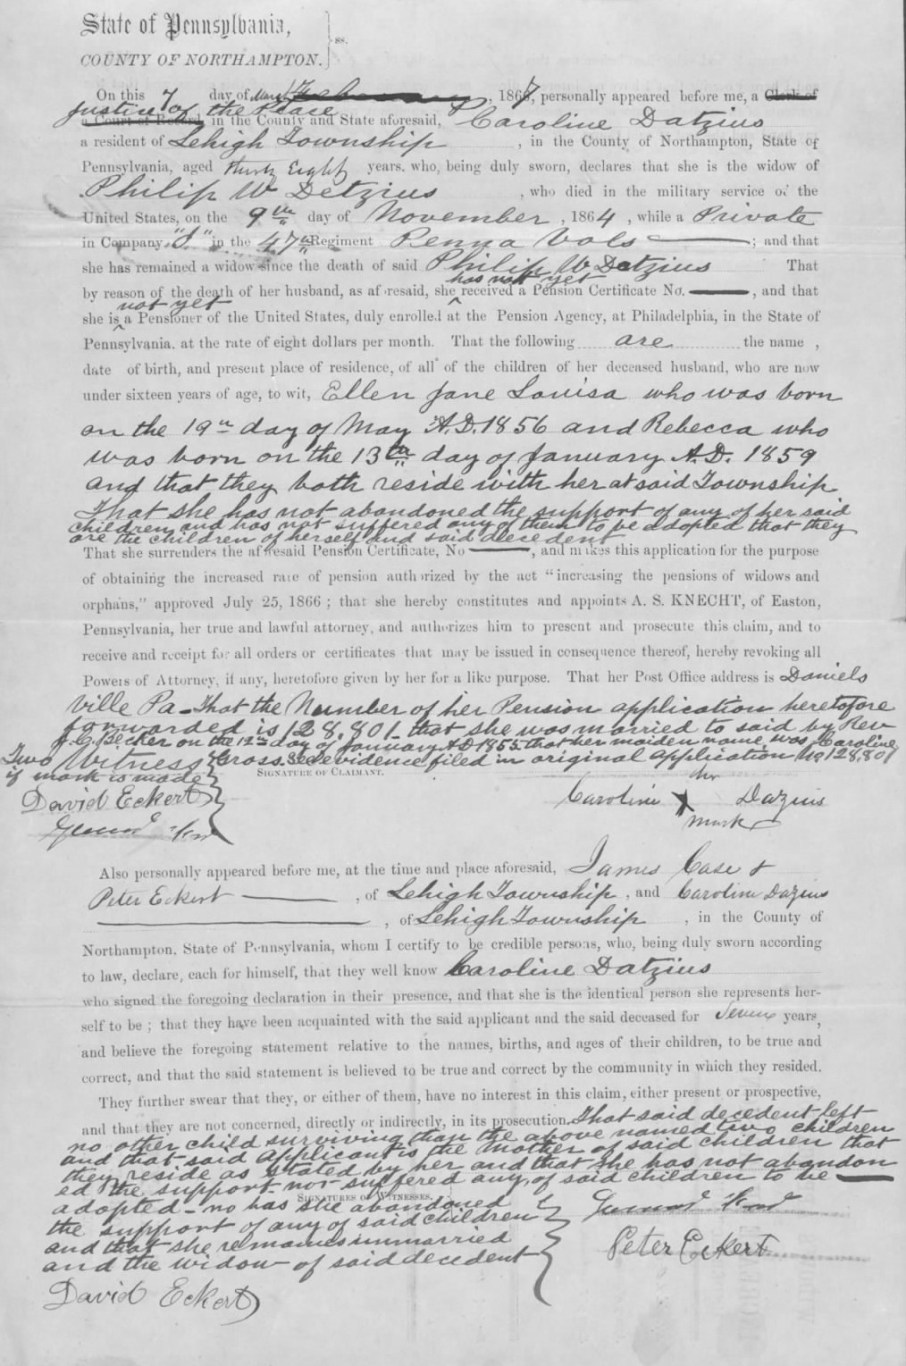 State of Pennsylvania,
COUNTY OF NORTHAMPTON. } ss.
On this 7 day of May February, 1867, personally appeared before me, a Clerk of
Justice of the Peace
a Court of Record in the County and State aforesaid, Caroline Datzius
a resident of Lehigh Township, in the County of Northampton, State of
Pennsylvania, aged thirty Eight years. who, being duly sworn, declares that she is the widow of
Philip W Detzius, who died in the military service of the
United States, on the 9th day of November, 1864, while a Private
in Company "I" in the 47th Regiment Penna Vols ; and that
she has remained a widow since the death of said Philip W Datzius That
has not yet
by reason of the death of her husband, as aforesaid, she received a Pension Certificate No. , and that
not yet
she is a Pensioner of the United States, duly enrolled at the Pension Agency, at Philadelphia, in the State of
Pennsylvania. at the rate of eight dollars per month. That the following are the name ,
date of birth, and present place of residence, of all of the children of her deceased husband, who are now
under sixteen years of age, to wit, Ellen Jane Louisa who was born
on the 19th day of May A.D. 1856 and Rebecca who
was born on the 13th day of January A.D. 1859
and that they both reside with her at said Township
That she has not abandoned the support of any of her said
children, and has not suffered any of them to be adopted that they
are the children of herself and said decedent
That she surrenders the aforesaid Pension Certificate, No , and makes this application for the purpose
of obtaining the increased rate of pension authorized by the act "increasing the pensions of widows and
orphans," approved July 25, 1866 ; that she hereby constitutes and appoints A. S. KNECHT, of Easton,
Pennsylvania, her true and lawful attorney, and authorizes him to present and prosecute this claim, and to
receive and receipt for all orders or certificates that may be issued in consequence thereof, hereby revoking all
Powers of Attorney, if any, heretofore given by her for a like purpose. That her Post Office address is Daniels
ville Pa - That the Number of her Pension application heretofore
forwarded is 128,801 - that she was married to said by Rev
Becker on the 12th day of January AD 1855 that her maiden name was Caroline
Two Witness Cross. See evidence filed in original application No 128,801
if mark is made
SIGNATURE OF CLAIMANT.
her
David Eckert
Caroline X Dazius
mark
Also personally appeared before me, at the time and place aforesaid, James Case &
Peter Eckert , of Lehigh Township, and Caroline Dazius
, of Lehigh Township , in the County of
Northampton, State of Pennsylvania, whom I certify to be credible persons, who, being duly sworn according
to law, declare, each for himself, that they well know Caroline Datzius
who signed the foregoing declaration in their presence, and that she is the identical person she represents her-
self to be ; that they have been acquainted with the said applicant and the said deceased for Seven years,
and believe the foregoing statement relative to the names, births, and ages of their children, to be true and
correct, and that the said statement is believed to be true and correct by the community in which they resided.
They further swear that they, or either of them, have no interest in this claim, either present or prospective,
and that they are not concerned, directly or indirectly, in its prosecution. That said decedent left
no other child surviving than the above named two children
and that said applicant is the mother of said children that
they reside as stated by her and that she has not abandon
ed the support nor suffered any of said children to be
SIGNATURES OF WITNESSES.
adopted - no has she abandoned
the support of any of said children
and that she remains unmarried
Peter Eckert
and the widow of said decedent
David Eckert